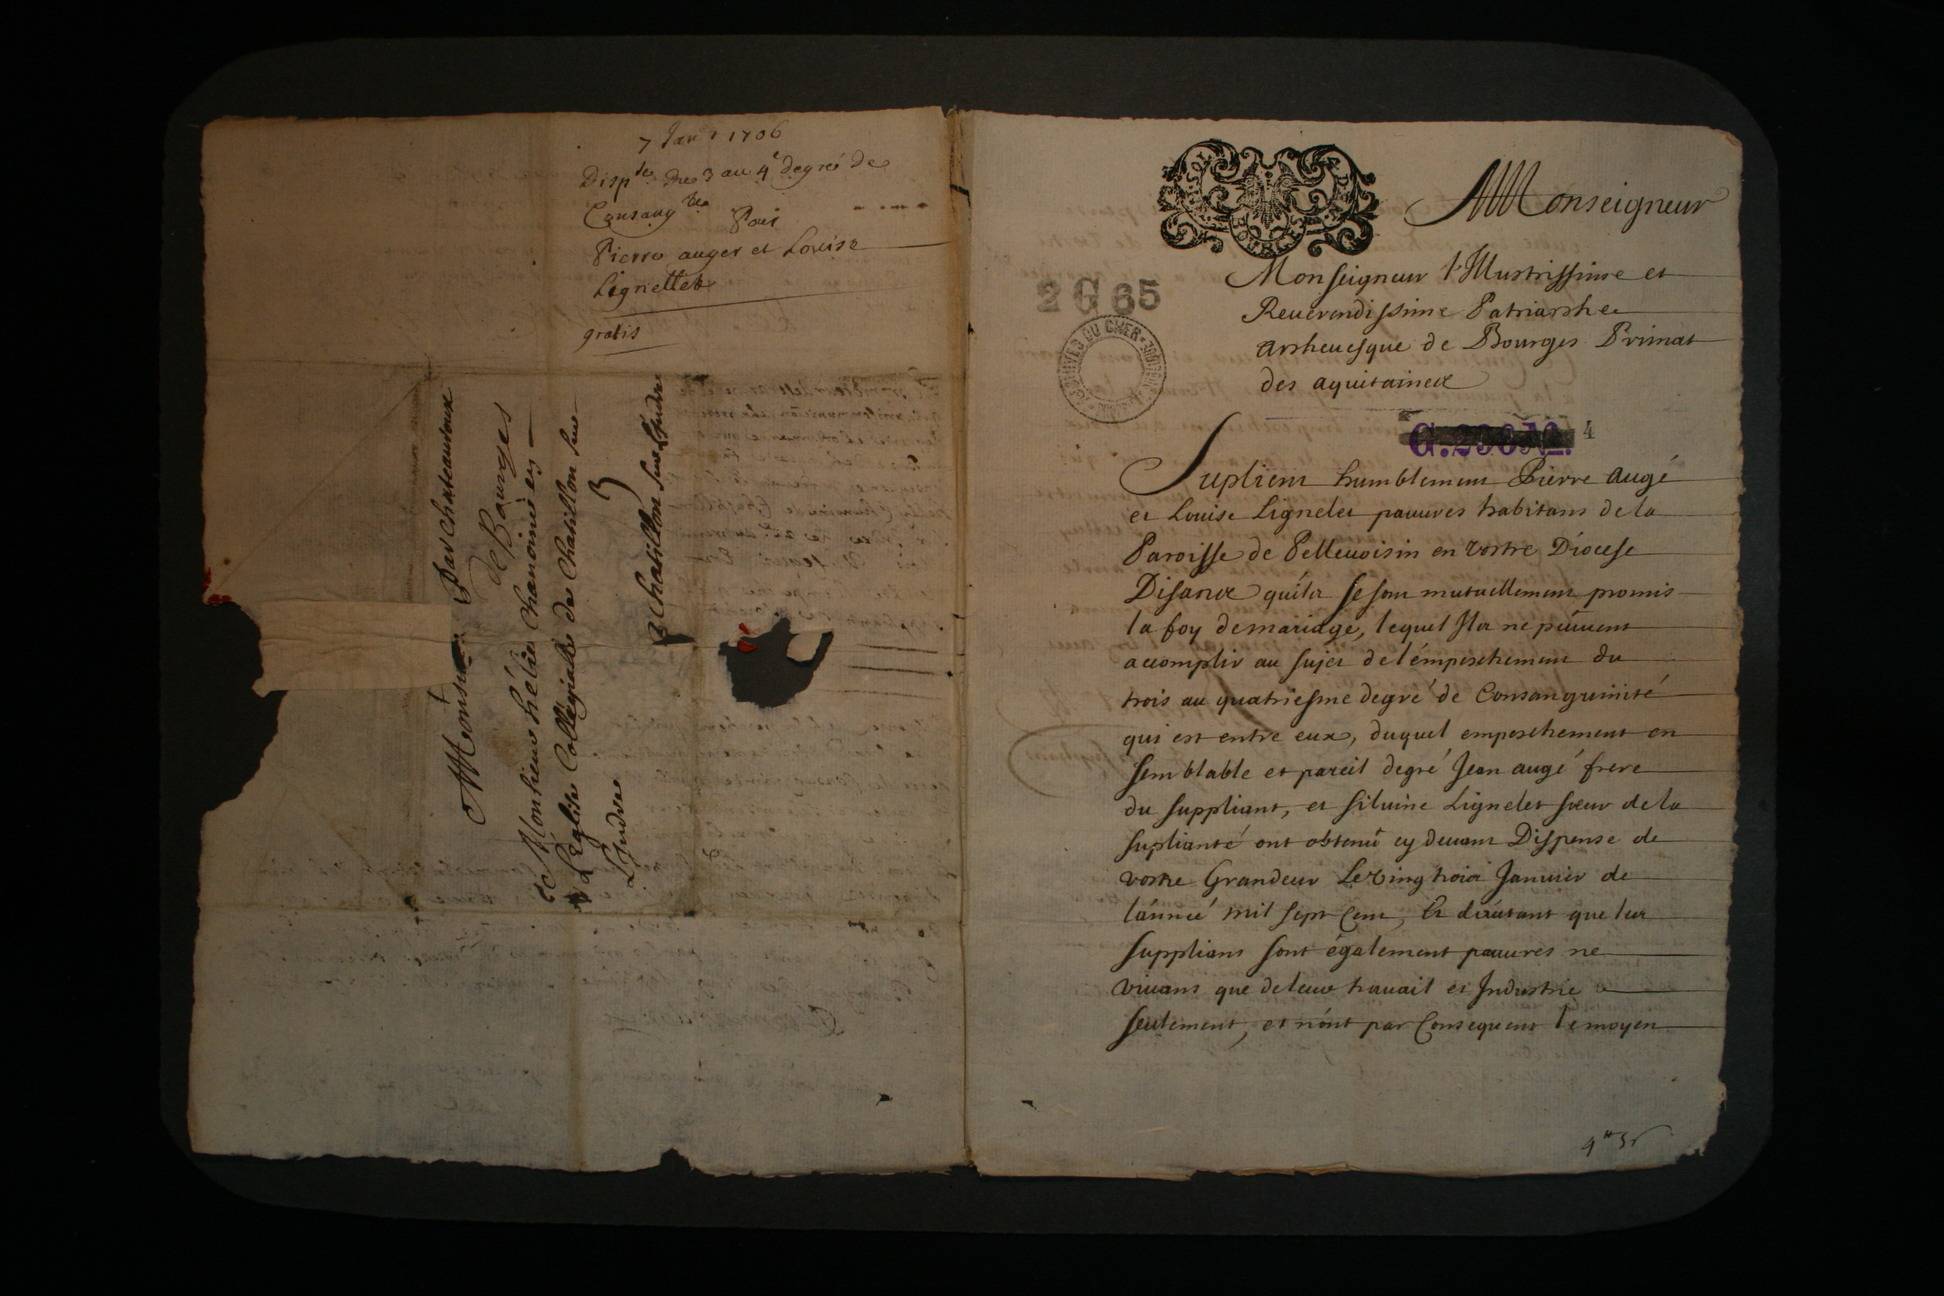 7 Janr 1706
Dispse du 3 au 4e degré de
Consangté
Pour
Pierre auger et Louise
Lignellet
gratis
Monsieur
Monsieur hélie Chanoine en
L'Eglise Collegialle de Chatillon sur
L'Indre
Par Chateauroux
de Bourges
3
a Chatillon sur L'Indre
Monseigneur
Monseigneur l'Illustrissime et
Reverendissime Patriarche
archeuesque de Bourges Primat
des aquitaines
2 G 65
ARCHIVES DU CHER
4
Suplient humblement Pierre augé
et Louise Lignelet pauures habitans de la
Paroisse de Pelleuoisin en vostre Diocese
Disans qu'ils se sont mutuellement promis
la foy de mariage, lequel Ils ne peuuent
accomplir au sujet de l'émpeschement du
trois au quatriesme degré de Consanguinité
qui est entre eux, duquel empeschement en
semblable et pareil degré Jean augé frere
du suppliant, et siluine Lignelet sœur de la
supliante ont obtenu cy deuant Dispense de
vostre Grandeur Le vingt trois Januier de
l'année mil sept cent, Et d'autant que les
supplians sont également pauures ne
viuans que de leur trauail et Industrie
seulement, et n'ont par Consequent le moyen